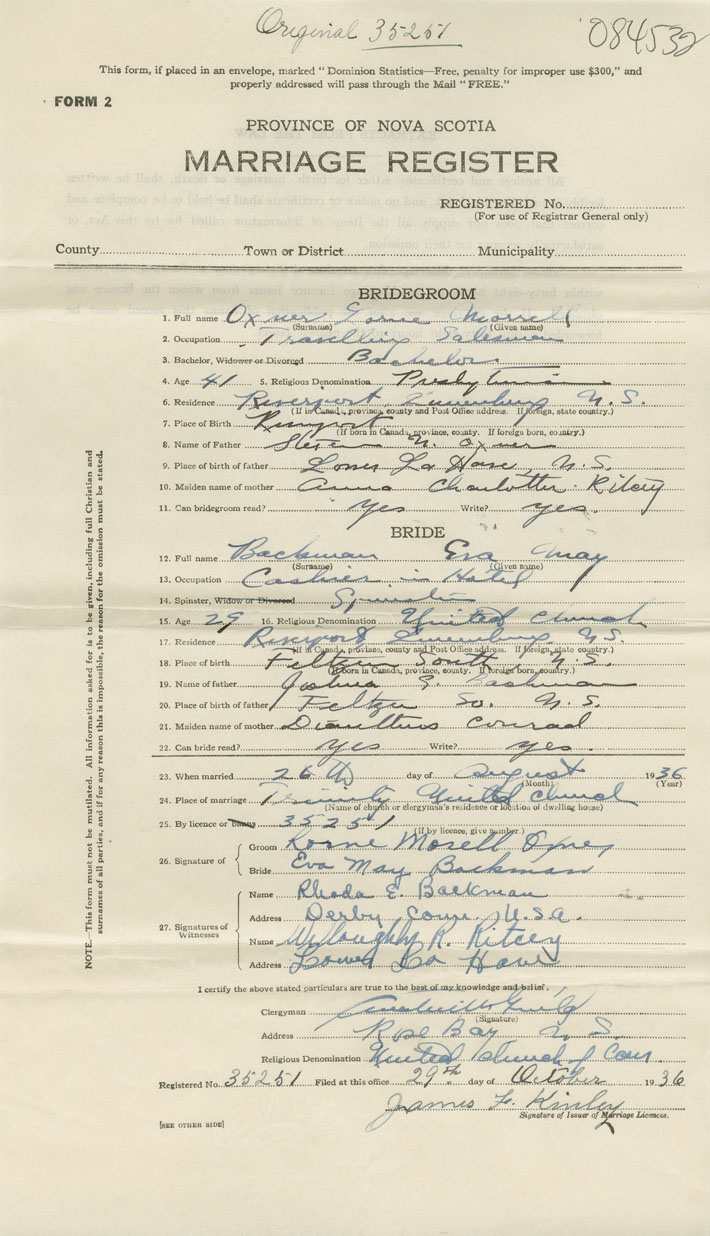 Original 35251
084532
This form, if placed in an envelope, marked "Dominion Statistics—Free, penalty for improper use $300," and
properly addressed will pass through the Mail "FREE."
FORM 2
PROVINCE OF NOVA SCOTIA
MARRIAGE REGISTER
REGISTERED No.
(For use of Registrar General only)
County Town or District Municipality
BRIDEGROOM
1. Full name Oxner Lorne Morrell
(Surname) (Given name)
2. Occupation Travelling Salesman
3. Bachelor, Widower or Divorced Bachelor
4. Age 41 5. Religious Denomination Presbyterian
6. Residence Riverport, Lunenburg N.S.
(If in Canada, province, county and Post Office address. If foreign, state country.)
7. Place of Birth Riverport
(If born in Canada, province, county. If foreign born, country.)
8. Name of Father N. Oxner
9. Place of birth of father Lower La Have, N.S.
10. Maiden name of mother Anna Charlotte Ritcey
11. Can bridegroom read? Yes Write? yes.
BRIDE
12. Full name Backman Eva May
(Surname) (Given name)
13. Occupation Cashier in Hotel
14. Spinster, Widow or Divorced Spinster
15. Age 29 16. Religious Denomination United Church
17. Residence Riverport Lunenburg N.S.
(If in Canada, province, county and Post Office address. If foreign, state country.)
18. Place of birth Feltzen South, N.S.
(If born in Canada, province, county. If foreign born, country.)
19. Name of father Joshua Backman
20. Place of birth of father Feltzen So. N.S.
21. Maiden name of mother Conrad
22. Can bride read? yes Write? yes.
23. When married 26th day of August 1936
(Month) (Year)
24. Place of marriage Trinity United Church
(Name of church or clergyman's residence or location of dwelling house)
25. By licence or banns 35251
(If by licence, give number.)
26. Signature of
Groom Lorne Morell Oxner
Bride Eva May Backman
27. Signatures of Witnesses
Name Rhoda E. Backman
Address Derby, Conn. U.S.A.
Name Willoughby R. Ritcey
Address Lower La Have
I certify the above stated particulars are true to the best of my knowledge and belief.
Clergyman
(Signature)
Address Rose Bay N.S.
Religious Denomination United Church of Can.
Registered No. 35251 Filed at this office 29th day of October 1936
James F. Kinley
Signature of Issuer of Marriage Licences.
[SEE OTHER SIDE]
NOTE.—This form must not be mutilated. All information asked for is to be given, including full Christian and
surnames of all parties, and if for any reason this is impossible, the reason for the omission must be stated.